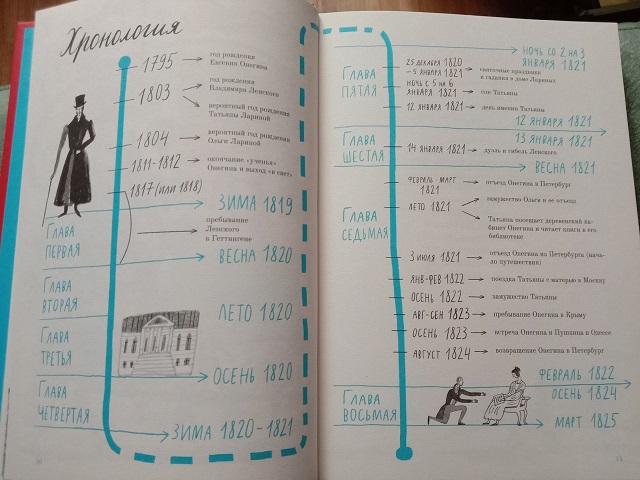 Хронология
1795
год рождения
Евгения Онегина
1803
год рождения
Владимира Ленского
вероятный год рождения
Татьяны Лариной
1804
вероятный год рождения
Ольги Лариной
1811-1812
окончание «ученья»
Онегина и выход «в свет»
1817 (или 1818)
пребывание
Ленского
в Геттингене
ЗИМА 1819
ГЛАВА
ПЕРВАЯ
ВЕСНА 1820
ГЛАВА
ВТОРАЯ
ЛЕТО 1820
ГЛАВА
ТРЕТЬЯ
ОСЕНЬ 1820
ГЛАВА
ЧЕТВЕРТАЯ
ЗИМА 1820-1821
НОЧЬ СО 2 НА 3
ЯНВАРЯ 1821
ГЛАВА
ПЯТАЯ
25 ДЕКАБРЯ 1820
– 5 ЯНВАРЯ 1821
святочные праздники
и гадания в доме Лариных
НОЧЬ С 5 НА 6
ЯНВАРЯ 1821
сон Татьяны
12 ЯНВАРЯ 1821
день именин Татьяны
12 ЯНВАРЯ 1821
13 ЯНВАРЯ 1821
ГЛАВА
ШЕСТАЯ
14 ЯНВАРЯ 1821
дуэль и гибель Ленского
ВЕСНА 1821
ФЕВРАЛЬ-МАРТ
1821
отъезд Онегина в Петербург
ГЛАВА
СЕДЬМАЯ
ЛЕТО 1821
замужество Ольги и ее отъезд
Татьяна посещает деревенский ка-
бинет Онегина и читает книги в его
библиотеке
3 ИЮЛЯ 1821
отъезд Онегина из Петербурга (нача-
ло путешествия)
ЯНВ-ФЕВ 1822
поездка Татьяны с матерью в Москву
ОСЕНЬ 1822
замужество Татьяны
АВГ-СЕН 1823
пребывание Онегина в Крыму
ОСЕНЬ 1823
встреча Онегина и Пушкина в Одессе
АВГУСТ 1824
возвращение Онегина в Петербург
ФЕВРАЛЬ 1822
ОСЕНЬ 1824
ГЛАВА
ВОСЬМАЯ
МАРТ 1825